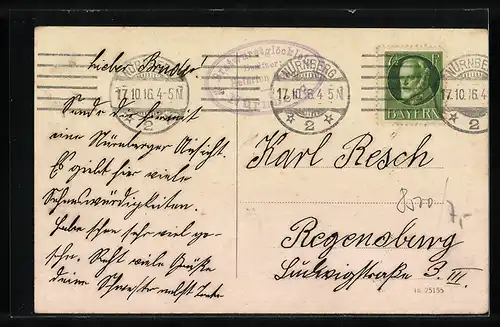 Lieber Bruder!
NÜRNBERG
17.10.16. 4-5 N
2
NÜRNBERG
17.10.16. 4-5 N
* 2 *
NÜRNBERG
17.10.16. 4-5 N
* 2 *
BAYERN
Sende Dir hiermit
eine Nürnberger Ansicht.
Es gibt hier viele
Sehenswürdigkeiten.
Habe schon sehr viel ge-
sehen. Recht viele Grüße
deine Schwester nebst Tante
Karl Resch
Regensburg
Ludwigstraße 3. III.
7,-
25155